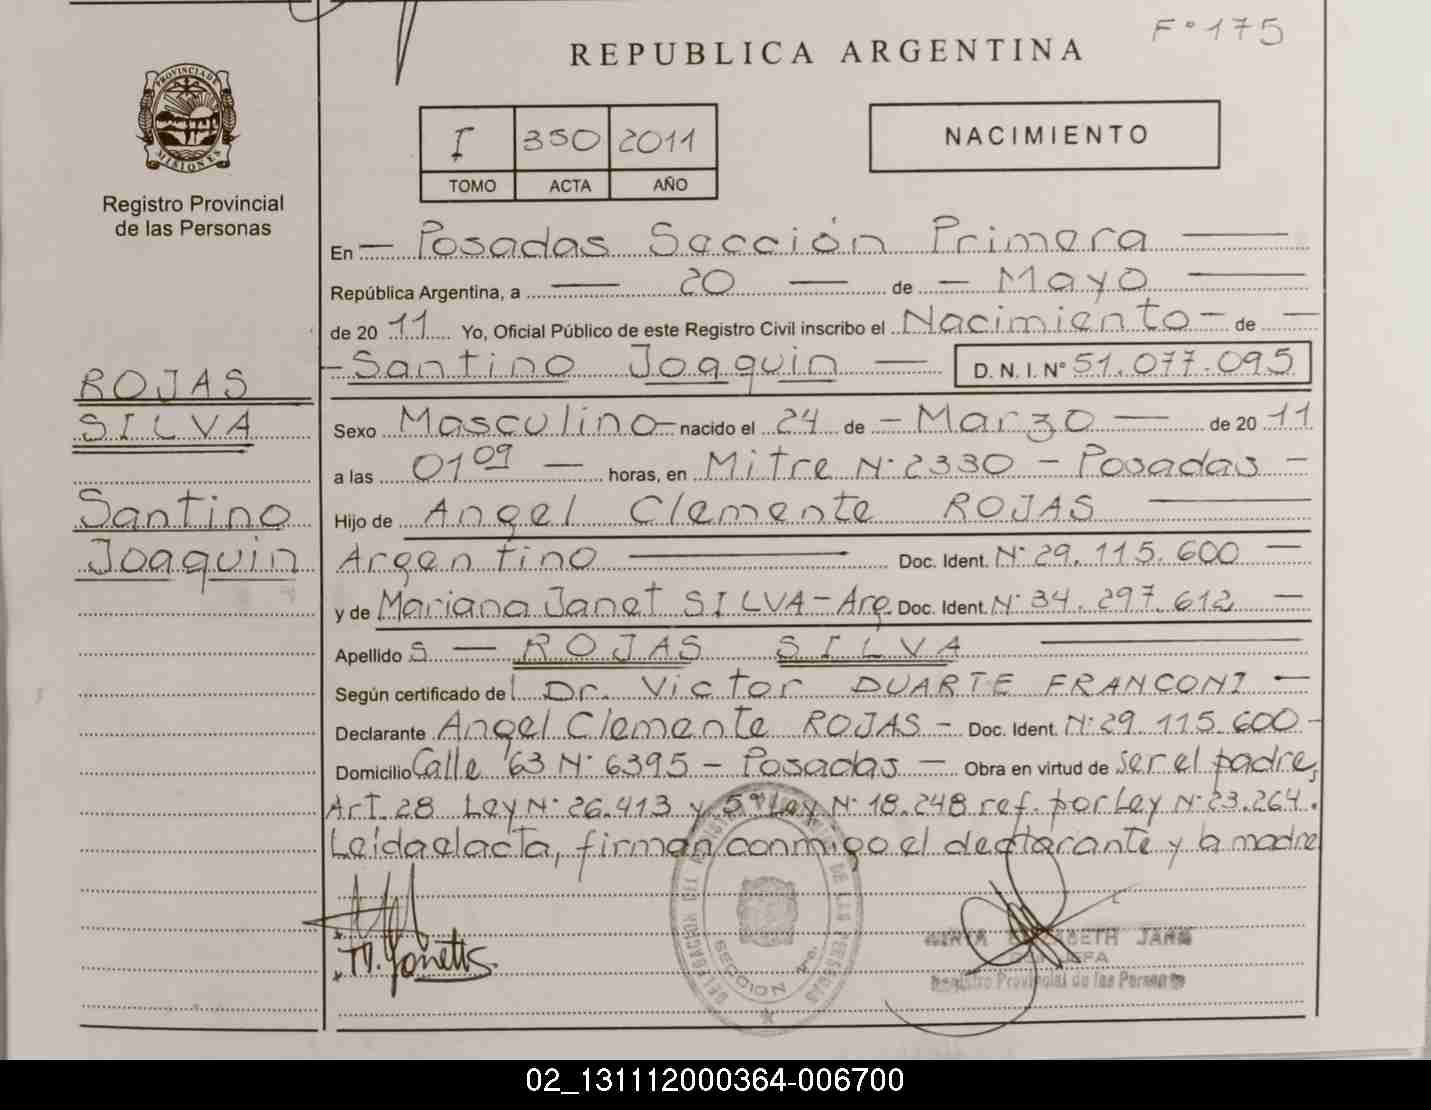 F° 175
REPUBLICA ARGENTINA
PROVINCIA DE MISIONES
Registro Provincial
de las Personas
I 350 2011
TOMO ACTA AÑO
NACIMIENTO
En — Posadas Sección Primera —
República Argentina, a — 20 — de — Mayo —
de 20 11 Yo, Oficial Público de este Registro Civil inscribo el Nacimiento — de —
— Santino Joaquin — D. N. I. N° 51.077.095
ROJAS
SILVA
Santino
Joaquin
Sexo Masculino — nacido el 24 de — Marzo — de 20 11
a las 01 09 — horas, en Mitre N° 2330 — Posadas —
Hijo de Angel Clemente ROJAS —
Argentino — Doc. Ident. N° 29.115.600 —
y de Mariana Janet SILVA — Arg. Doc. Ident. N° 34.297.612 —
Apellido s — ROJAS SILVA —
Según certificado del Dr. Victor DUARTE FRANCONI —
Declarante Angel Clemente ROJAS — Doc. Ident. N° 29.115.600 —
Domicilio Calle 63 N° 6395 — Posadas — Obra en virtud de ser el padre,
Art. 28 Ley N° 26.413 y 5° Ley N° 18.248 ref. por Ley N° 23.264.
Leída el acta, firman conmigo el declarante y la madre
SECCION 1ra.
JARA
Registro Provincial de las Personas
02_131112000364-006700